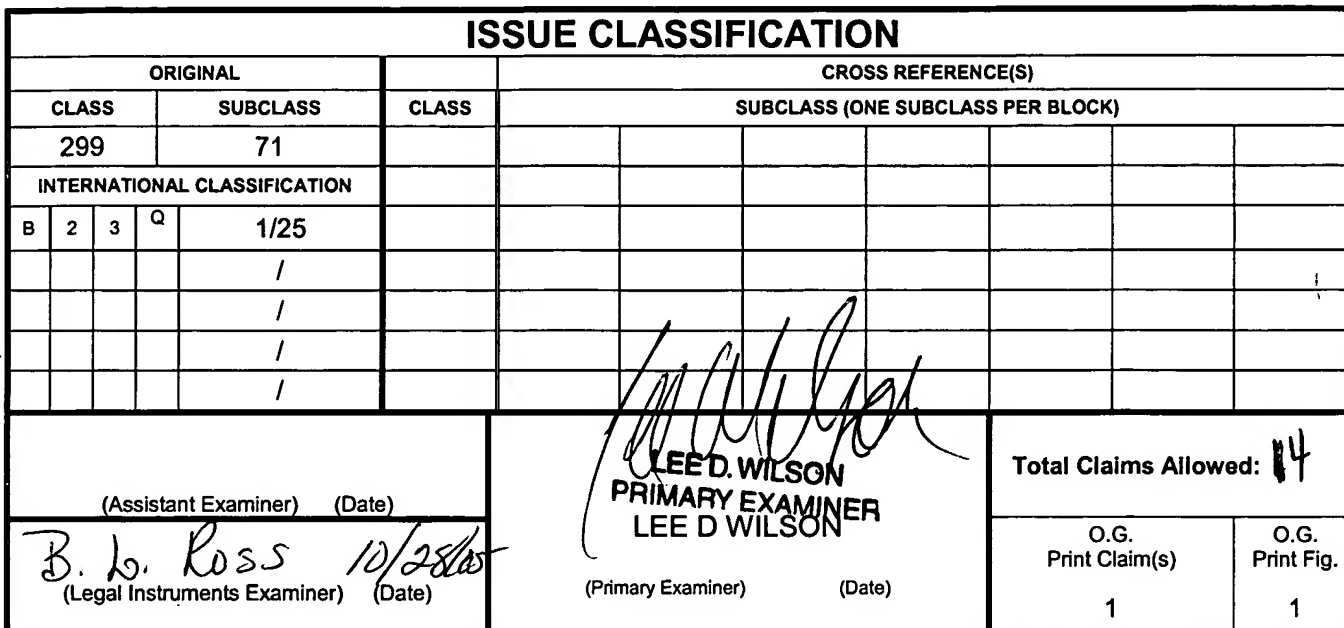 ISSUE CLASSIFICATION
ORIGINAL CROSS REFERENCE(S)
CLASS SUBCLASS CLASS SUBCLASS (ONE SUBCLASS PER BLOCK)
299 71
INTERNATIONAL CLASSIFICATION
B 2 3 Q 1/25
/
/
/
/
(Assistant Examiner) (Date)
B. L. Ross 10/28/05
(Legal Instruments Examiner) (Date)
LEE D. WILSON
PRIMARY EXAMINER
LEE D WILSON
(Primary Examiner) (Date)
Total Claims Allowed: 14
O.G.
Print Claim(s)
1
O.G.
Print Fig.
1